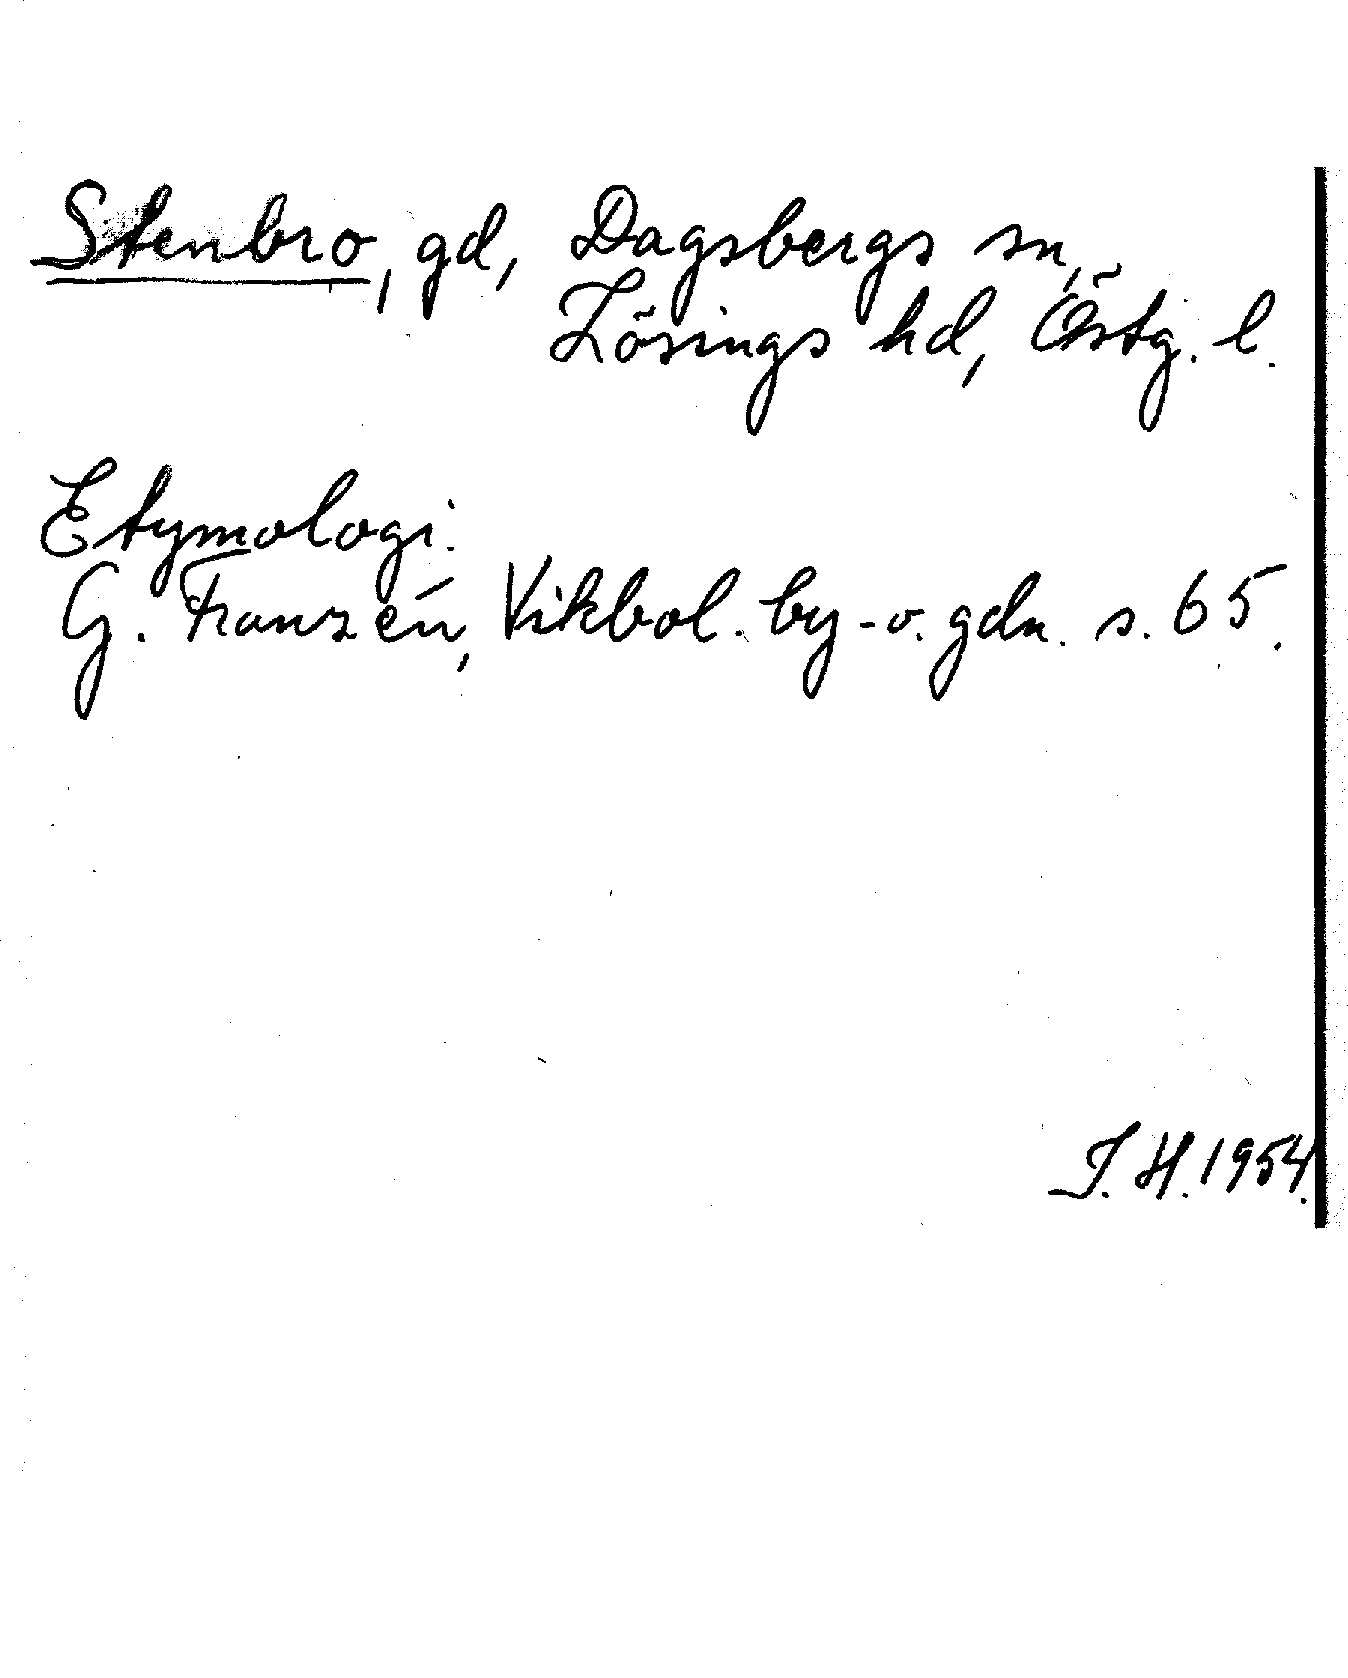 Stenbro, gd, Dagsbergs sn,
Lösings hd, Östg. l.
Etymologi.
G. Franzén, Vikbol. by- o. gdn. s. 65.
I. H. 1954.